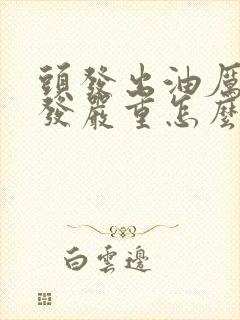 頭發出油厲
發嚴重怎麼
白雲邊